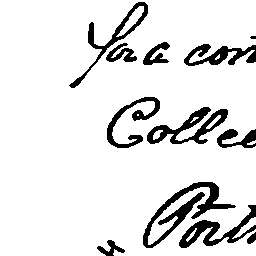 for a con
Collec
Port